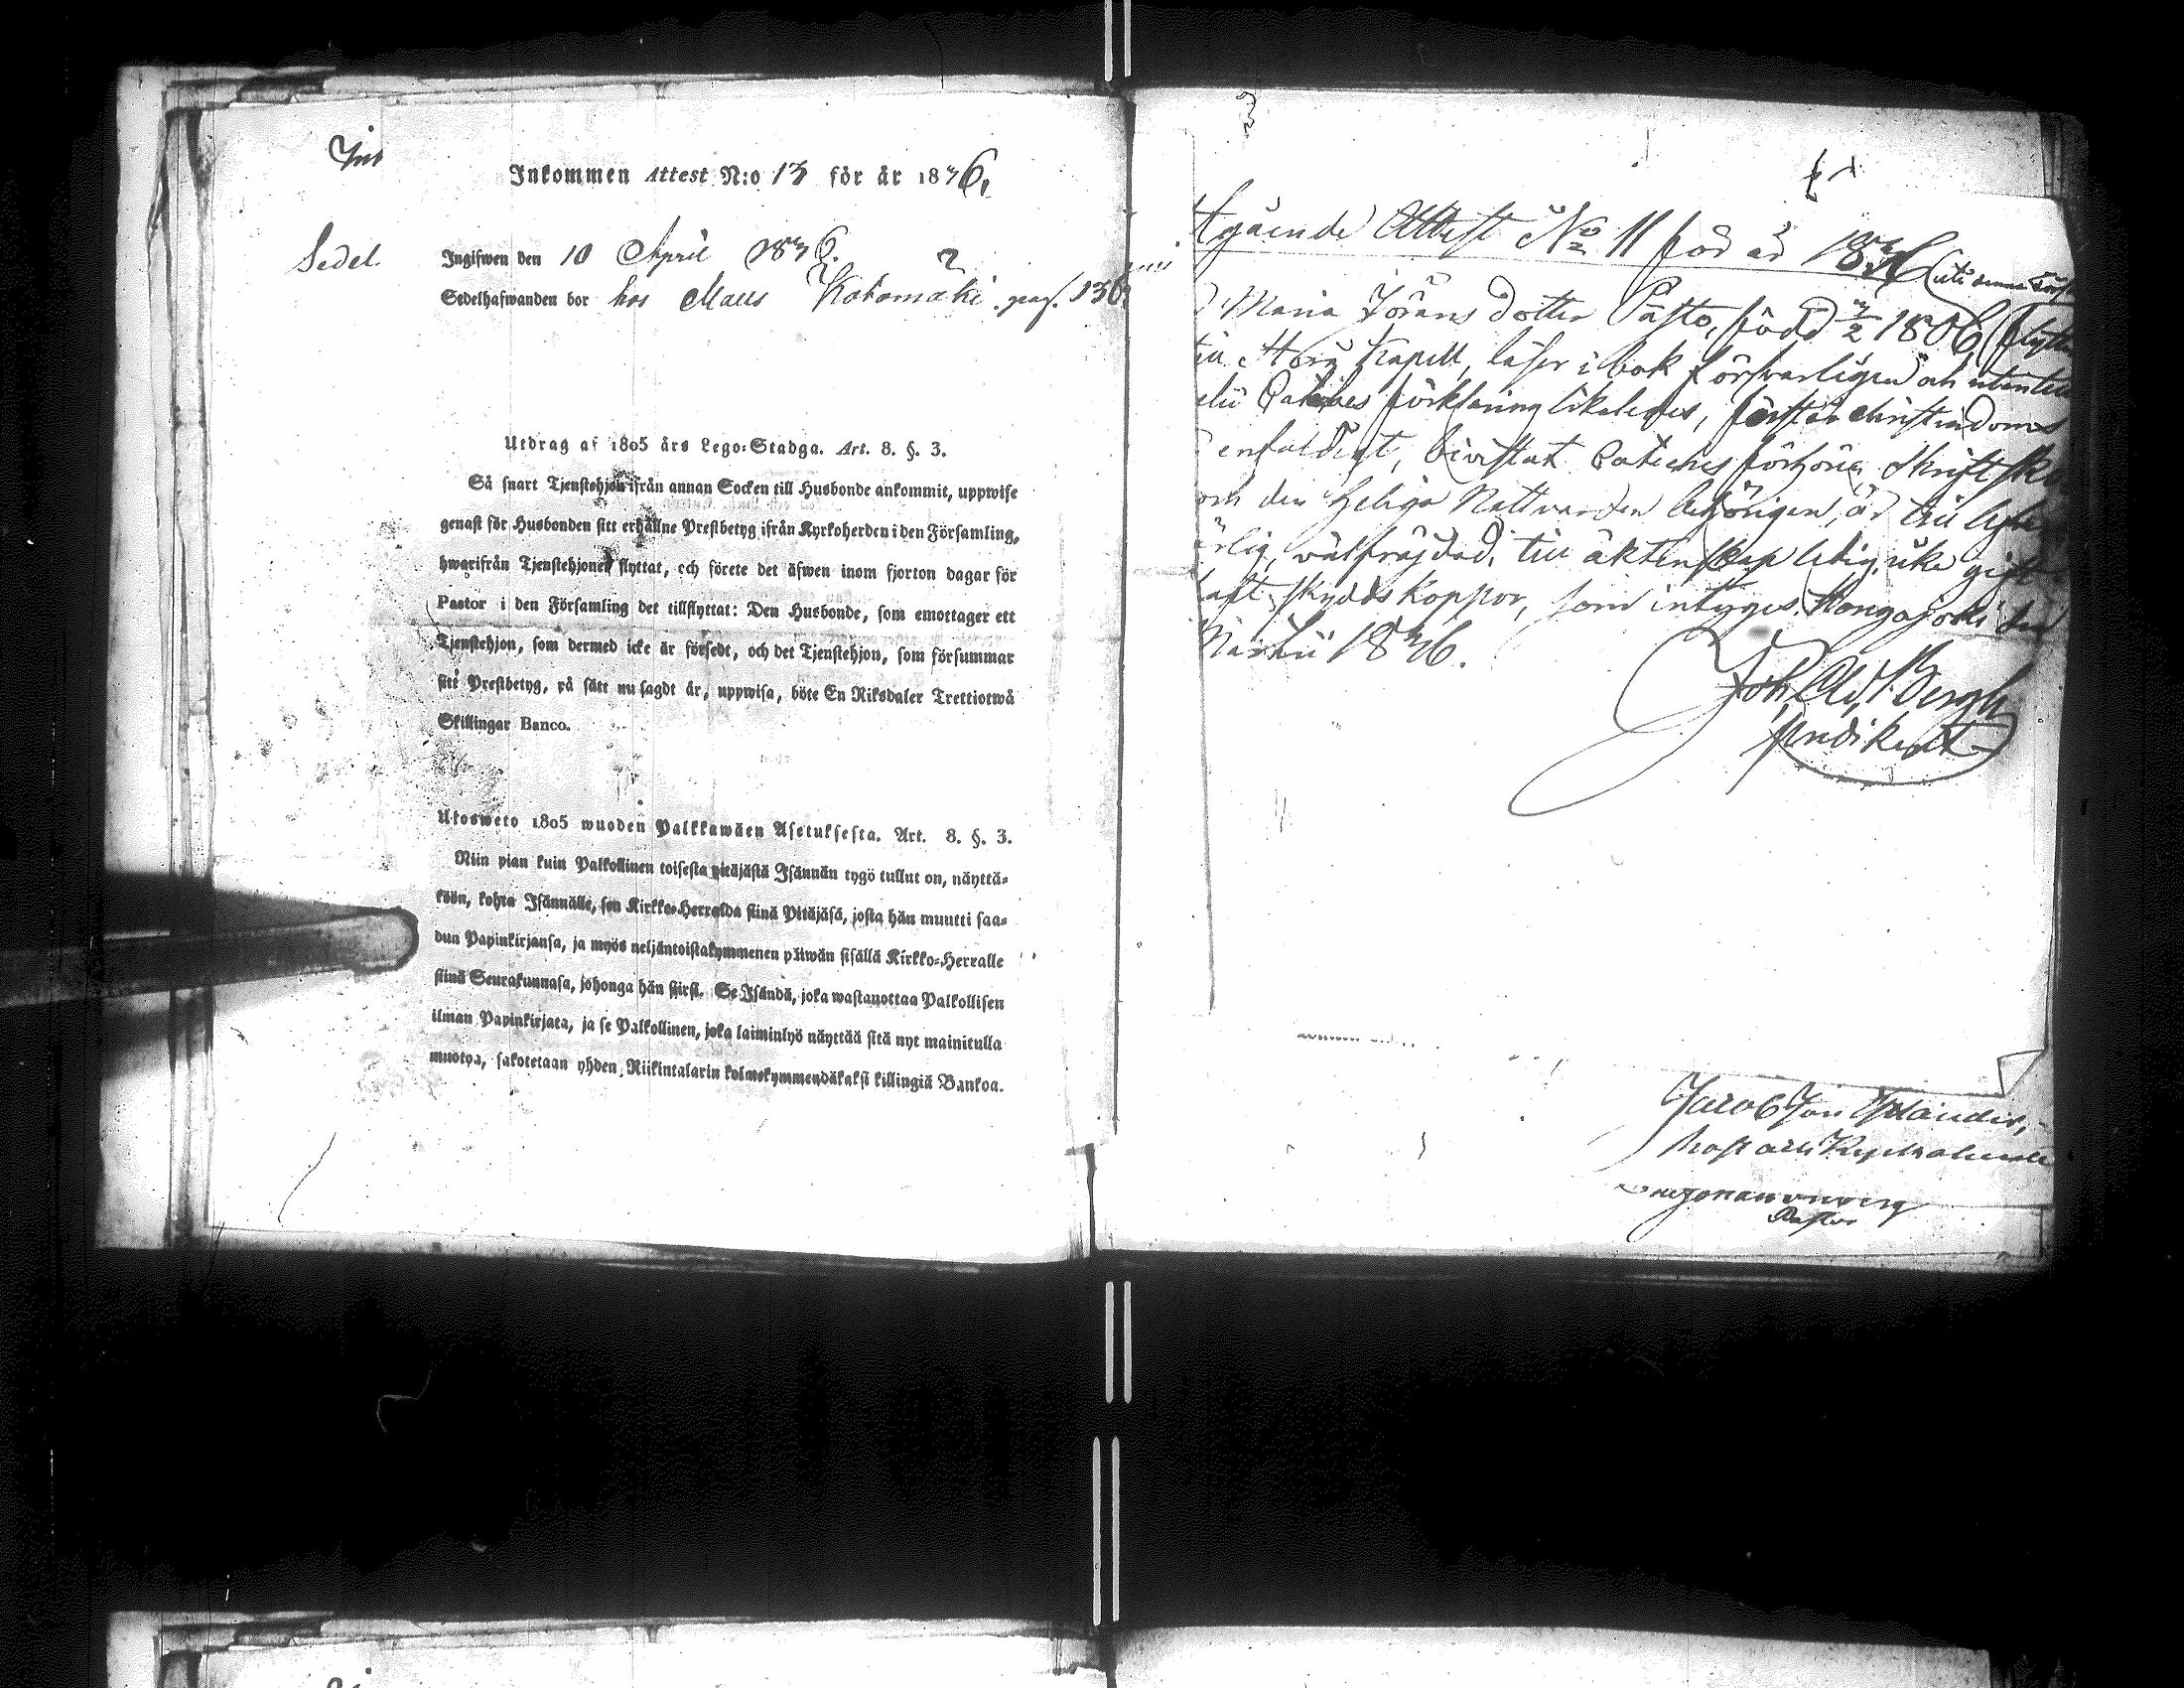 Inkommen Attest N:o 13 för år 1836.
Sedel.
Ingifwen den 10 April 1836.
Sedelhafwanden bor hos Matts Kokomäki. pag. 136
Utdrag af 1805 års Lego-Stadga. Art. 8. §. 3.
Så snart Tjenstehjon ifrån annan Socken till Husbonde ankommit, uppwise
genast för Husbonden sitt erhållne Prestbetyg ifrån Kyrkoherden i den Församling,
hwarifrån Tjenstehjonet flyttat, och förete det äfwen inom fjorton dagar för
Pastor i den Församling det tillflyttat: Den Husbonde, som emottager ett
Tjenstehjon, som dermed icke är försedt, och det Tjenstehjon, som försummar
sitt Prestbetyg, på sätt nu sagdt är, uppwisa, böte En Riksdaler Trettiotwå
Skillingar Banco.
Utosweto 1805 wuoden Palkkawäen Asetuksesta. Art. 8. §. 3.
Niin pian kuin Palkollinen toisesta pitäjästä Isännän tygö tullut on, näyttä-
köön, kohta Isännälle, sen Kirkko-Herralda siinä Pitäjäsä, josta hän muutti saa-
dun Papinkirjansa, ja myös neljäntoistakymmenen päiwän sisällä Kirkko-Herralle
siinä Seurakunnasa, johonga hän siirsi. Se Isändä, joka wastanottaa Palkollisen
ilman Papinkirjata, ja se Palkollinen, joka laiminlyö näyttää sitä nyt mainitulla
muotoa, sakotetaan yhden Riikintalarin kolmekymmendäkaksi killingiä Bankoa.
tgående Attest No 11 för år 1836
Maria Jörans dotter Pästo, född 3/2 1806 flytta
till Kapell, läser i bok försvarligen och utantill
förklaring likaledes, förstår christendoms
enfaldigt, bivistat Catechesförhör, Skriftska
och den heliga Nattvarden behörigen, är till
ärlig, wälfräjdad, till äktenskap ledig, icke gift
haft skyddskoppor, som intygas. Kangajoki den
Martii 1836.
Joh. Ad. Bergh
Prædikant
Pastor